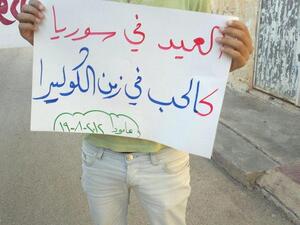 العيد في سوريا
كالحب في زمن الكوليرا
عامودا